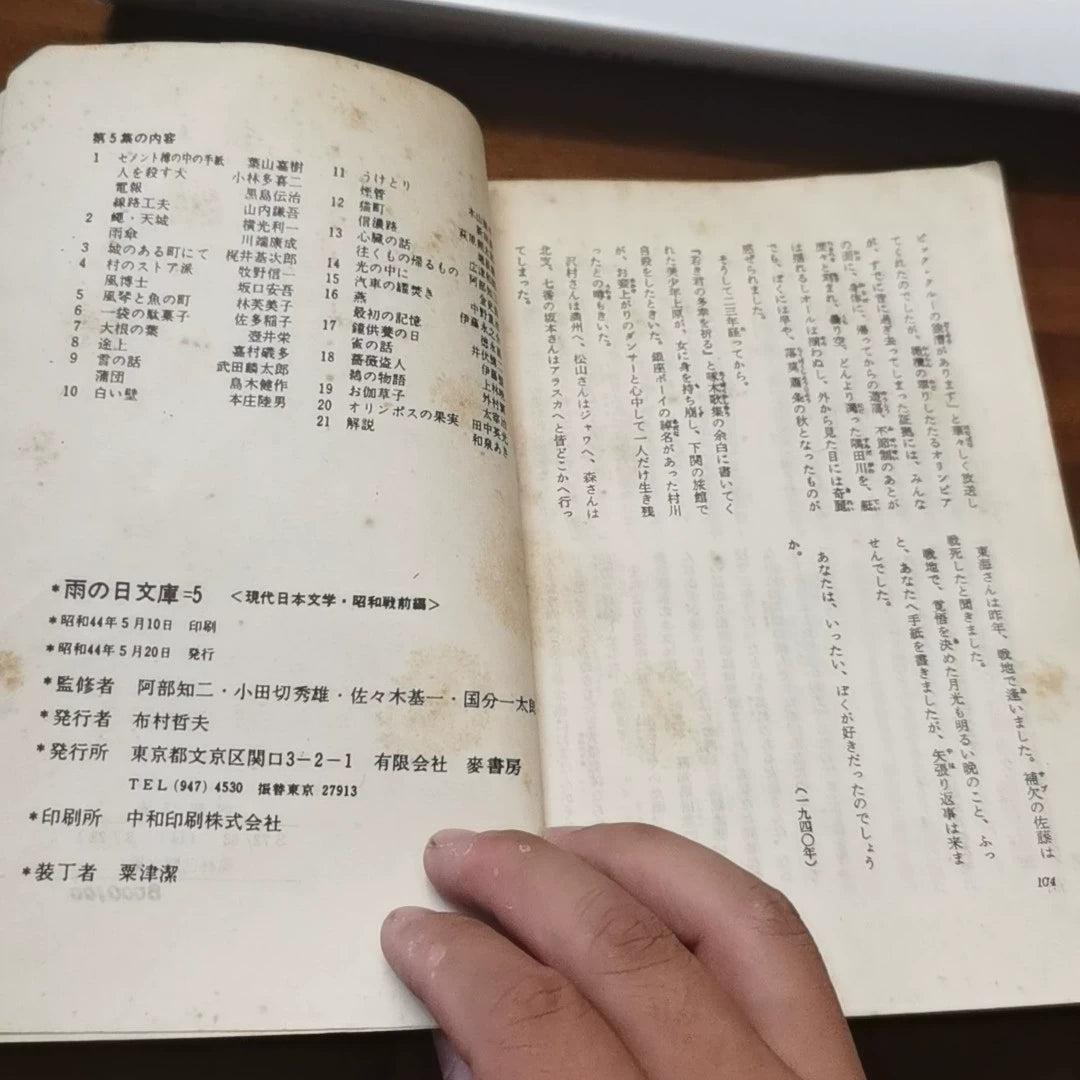 第5集の内容
1 セメント樽の中の手紙 葉山嘉樹
人を殺す犬 小林多喜二
電報 黒島伝治
線路工夫 山内謙吾
2 蠅・天城 横光利一
雨傘 川端康成
3 城のある町にて 梶井基次郎
4 村のストア派 牧野信一
風博士 坂口安吾
5 風琴と魚の町 林芙美子
6 一袋の駄菓子 佐多稲子
7 大根の葉 壺井栄
8 途上 嘉村礒多
9 雪の話 武田麟太郎
蒲団 島木健作
10 白い壁 本庄陸男
11 うけとり 木山
煙管
12 猫町 萩原
信濃路
13 心臓の話 広津
往くもの帰るもの 阿部
14 光の中に 金
15 汽車の罐焚き 中野
16 燕
最初の記憶 伊藤
17 鐘供養の日
雀の話 井伏
18 薔薇盗人 上林
鵠の物語 外村
19 お伽草子 太宰治
20 オリンポスの果実 田中英光
21 解説 和泉あき
*雨の日文庫=5 <現代日本文学・昭和戦前編>
*昭和44年5月10日 印刷
*昭和44年5月20日 発行
*監修者 阿部知二・小田切秀雄・佐々木基一・国分一太郎
*発行者 布村哲夫
*発行所 東京都文京区関口3-2-1 有限会社 麥書房
TEL (947) 4530 振替東京 27913
*印刷所 中和印刷株式会社
*装丁者 粟津潔
ビック・クルーの独漕があります』と華々しく放送し
てくれたのでしたが、橄欖の翠りしたたるオリンピア
が、すでに昔に過ぎ去ってしまった証拠には、みんな
の面に、身体に、帰ってからの遊蕩、不節制のあとが
歴々と刻まれ、曇り空、どんより濁った隅田川を、艇
は揺れるしオールは揃わぬし、外から見た目には奇麗
でも、ぼくには早や、落莫蕭条の秋となったものが
感ぜられました。
そうして二三年経ってから。
『若き君の多幸を祈る』と啄木歌集の余白に書いてく
れた美少年上原が、女に身を持ち崩し、下関の旅館で
自殺をしたときいた。銀座ボーイの綽名があった村川
が、お妾上がりのダンサーと心中して一人だけ生き残
ったとの噂もきいた。
沢村さんは満州へ、松山さんはジャワへ、森さんは
北支、七番の坂本さんはアラスカへと皆どこかへ行っ
てしまった。
東海さんは昨年、戦地で逢いました。補欠の佐藤は
戦死したと聞きました。
戦地で、覚悟を決めた月光も明るい晩のこと、ふっ
と、あなたへ手紙を書きましたが、矢張り返事は来ま
せんでした。
あなたは、いったい、ぼくが好きだったのでしょう
か。
(一九四〇年)
104